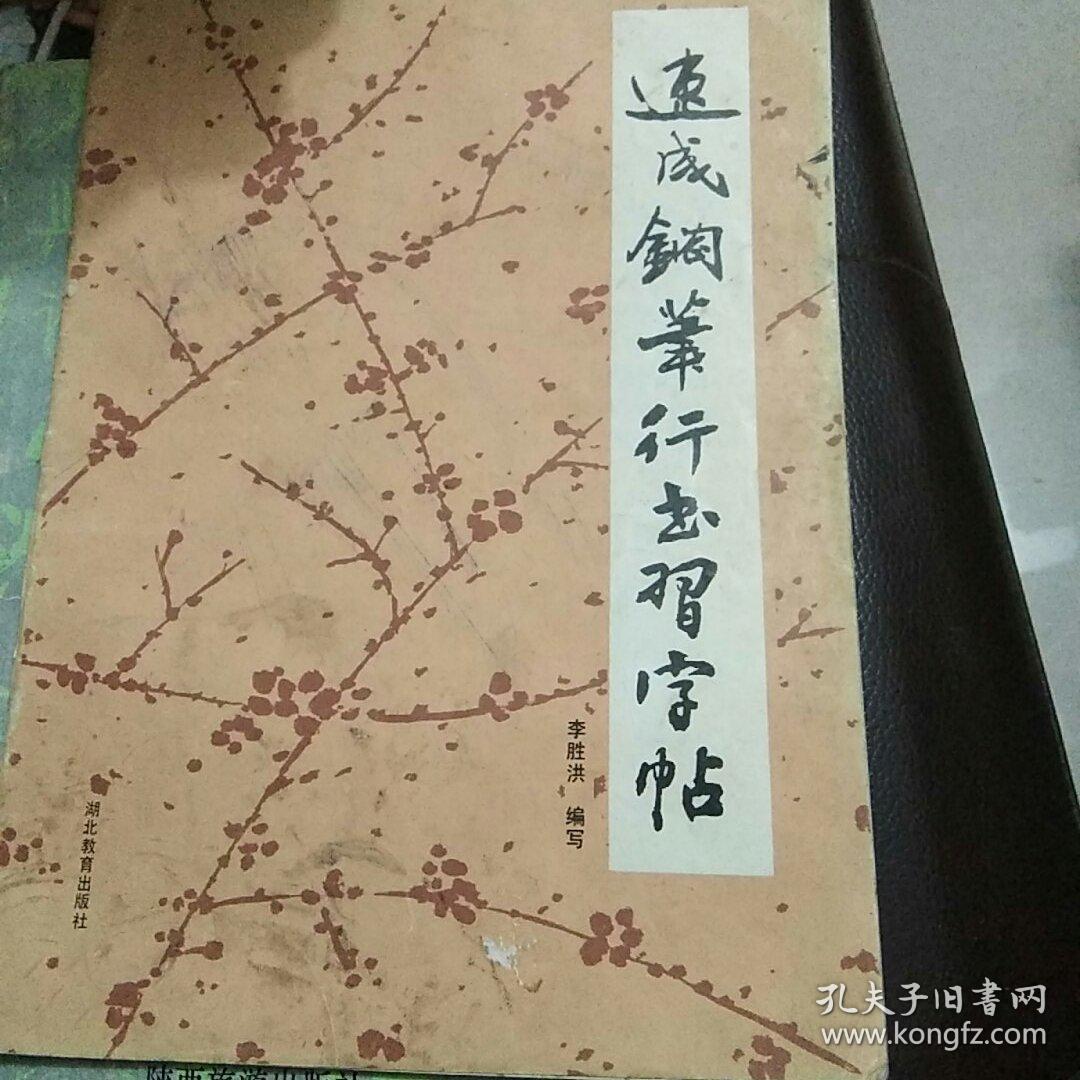 速成鋼筆行书習字帖
李胜洪 编写
湖北教育出版社
陕西旅游出版社
孔夫子旧書网
www.kongfz.com